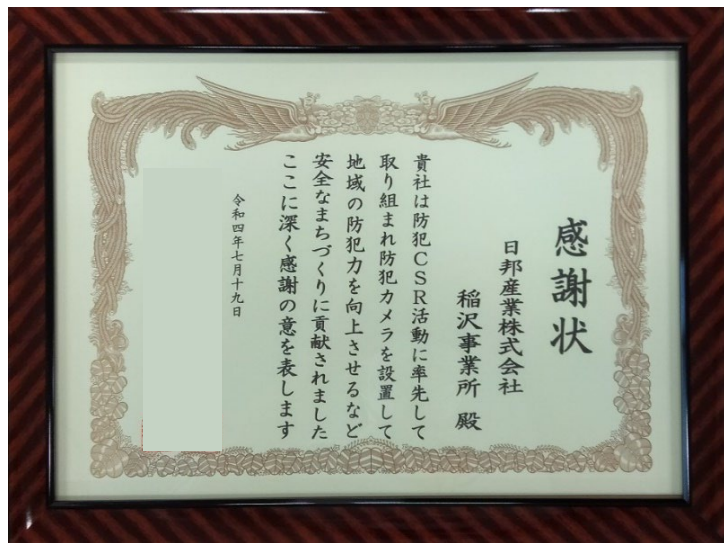 感謝状
日邦産業株式会社
稲沢事業所 殿
貴社は防犯CSR活動に率先して
取り組まれ防犯カメラを設置して
地域の防犯力を向上させるなど
安全なまちづくりに貢献されました
ここに深く感謝の意を表します
令和四年七月十九日